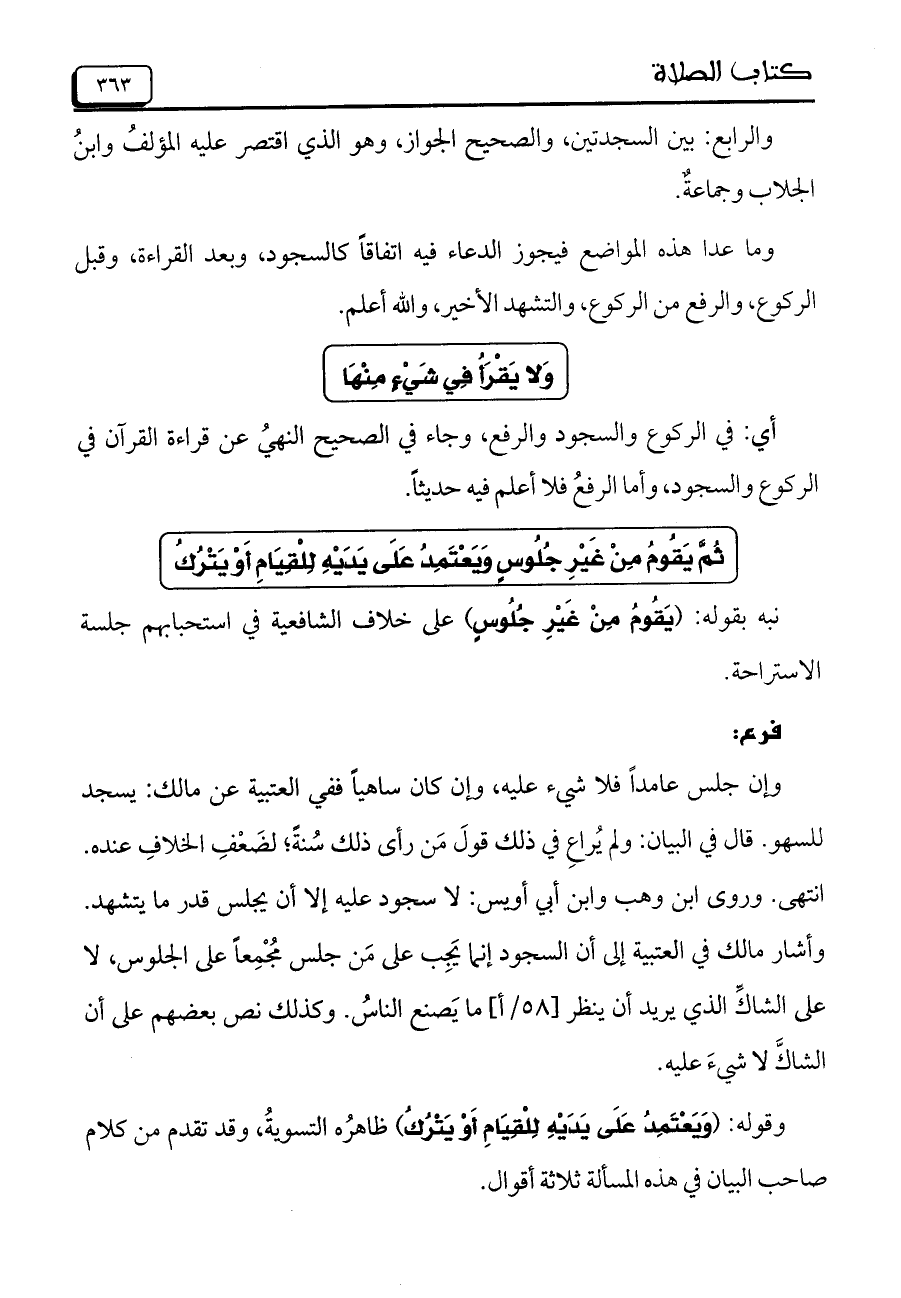 كتاب الصلاة
٣٦٣
والرابع: بين السجدتين، والصحيح الجواز، وهو الذي اقتصر عليه المؤلفُ وابنُ
الجلاب وجماعةٌ.
وما عدا هذه المواضع فيجوز الدعاء فيه اتفاقاً كالسجود، وبعد القراءة، وقبل
الركوع، والرفع من الركوع، والتشهد الأخير، والله أعلم.
وَلا يَقْرَأُ فِي شَيْءٍ مِنْهَا
أي: في الركوع والسجود والرفع، وجاء في الصحيح النهيُ عن قراءة القرآن في
الركوع والسجود، وأما الرفعُ فلا أعلم فيه حديثاً.
ثُمَّ يَقُومُ مِنْ غَيْرِ جُلُوسٍ وَيَعْتَمِدُ عَلَى يَدَيْهِ لِلْقِيَامِ أَوْ يَتْرُكُ
نبه بقوله: (يَقُومُ مِنْ غَيْرِ جُلُوسٍ) على خلاف الشافعية في استحبابهم جلسة
الاستراحة.
فرع:
وإن جلس عامداً فلا شيء عليه، وإن كان ساهياً ففي العتبية عن مالك: يسجد
للسهو. قال في البيان: ولم يُراعِ في ذلك قولَ مَن رأى ذلك سُنةً؛ لضَعْفِ الخلافِ عنده.
انتهى. وروى ابن وهب وابن أبي أويس: لا سجود عليه إلا أن يجلس قدر ما يتشهد.
وأشار مالك في العتبية إلى أن السجود إنما يَجِب على مَن جلس مُجْمِعاً على الجلوس، لا
على الشاكِّ الذي يريد أن ينظر [٥٨/ أ] ما يَصنع الناسُ. وكذلك نص بعضهم على أن
الشاكَّ لا شيءَ عليه.
وقوله: (وَيَعْتَمِدُ عَلَى يَدَيْهِ لِلْقِيَامِ أَوْ يَتْرُكُ) ظاهرُه التسويةُ، وقد تقدم من كلام
صاحب البيان في هذه المسألة ثلاثة أقوال.